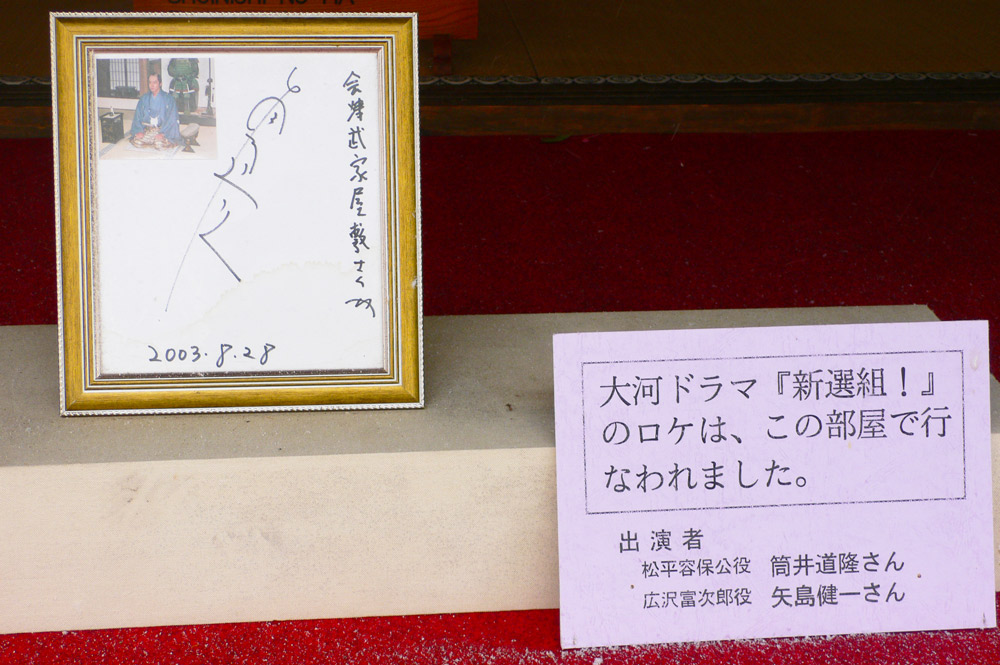 SHOINSHI NO MA
会津武家屋敷さん江
2003.8.28
大河ドラマ『新選組！』
のロケは、この部屋で行
なわれました。
出演者
松平容保公役 筒井道隆さん
広沢富次郎役 矢島健一さん